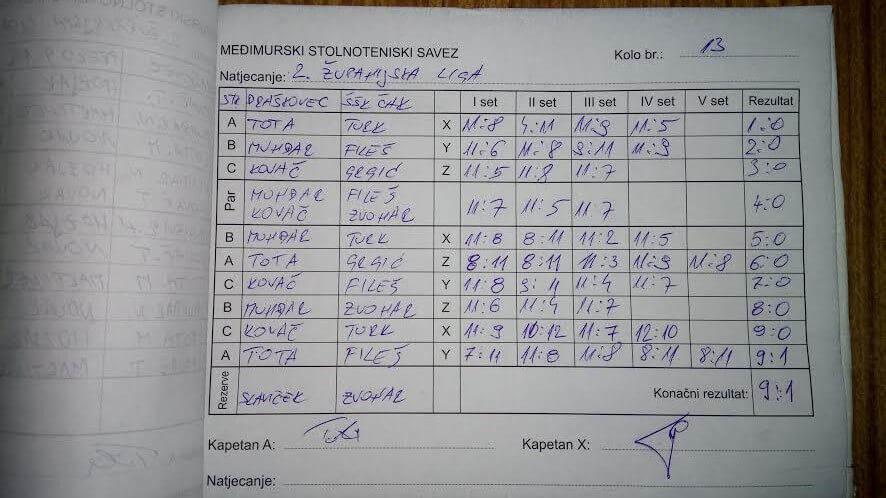 MEĐIMURSKI STOLNOTENISKI SAVEZ
Kolo br.: 13
Natjecanje: 2. ŽUPANIJSKA LIGA
STK DRAŠKOVEC ŠŠK ČAK I set II set III set IV set V set Rezultat
A TOTA TURK X 11:8 4:11 11:9 11:5 1:0
B MUNĐAR FILEŠ Y 11:6 11:8 9:11 11:9 2:0
C KOVAČ GRGIĆ Z 11:5 11:8 11:7 3:0
Par MUNĐAR KOVAČ FILEŠ ZVONAR 11:7 11:5 11:7 4:0
B MUNĐAR TURK X 11:8 8:11 11:2 11:5 5:0
A TOTA GRGIĆ Z 8:11 8:11 11:3 11:9 11:8 6:0
C KOVAČ FILEŠ Y 11:8 9:11 11:4 11:7 7:0
B MUNĐAR ZVONAR Z 11:6 11:4 11:7 8:0
C KOVAČ TURK X 11:9 10:12 11:7 12:10 9:0
A TOTA FILEŠ Y 7:11 11:8 11:8 8:11 8:11 9:1
Rezerve SLAVIČEK ZVONAR Konačni rezultat: 9:1
Kapetan A: Kapetan X:
Natjecanje: